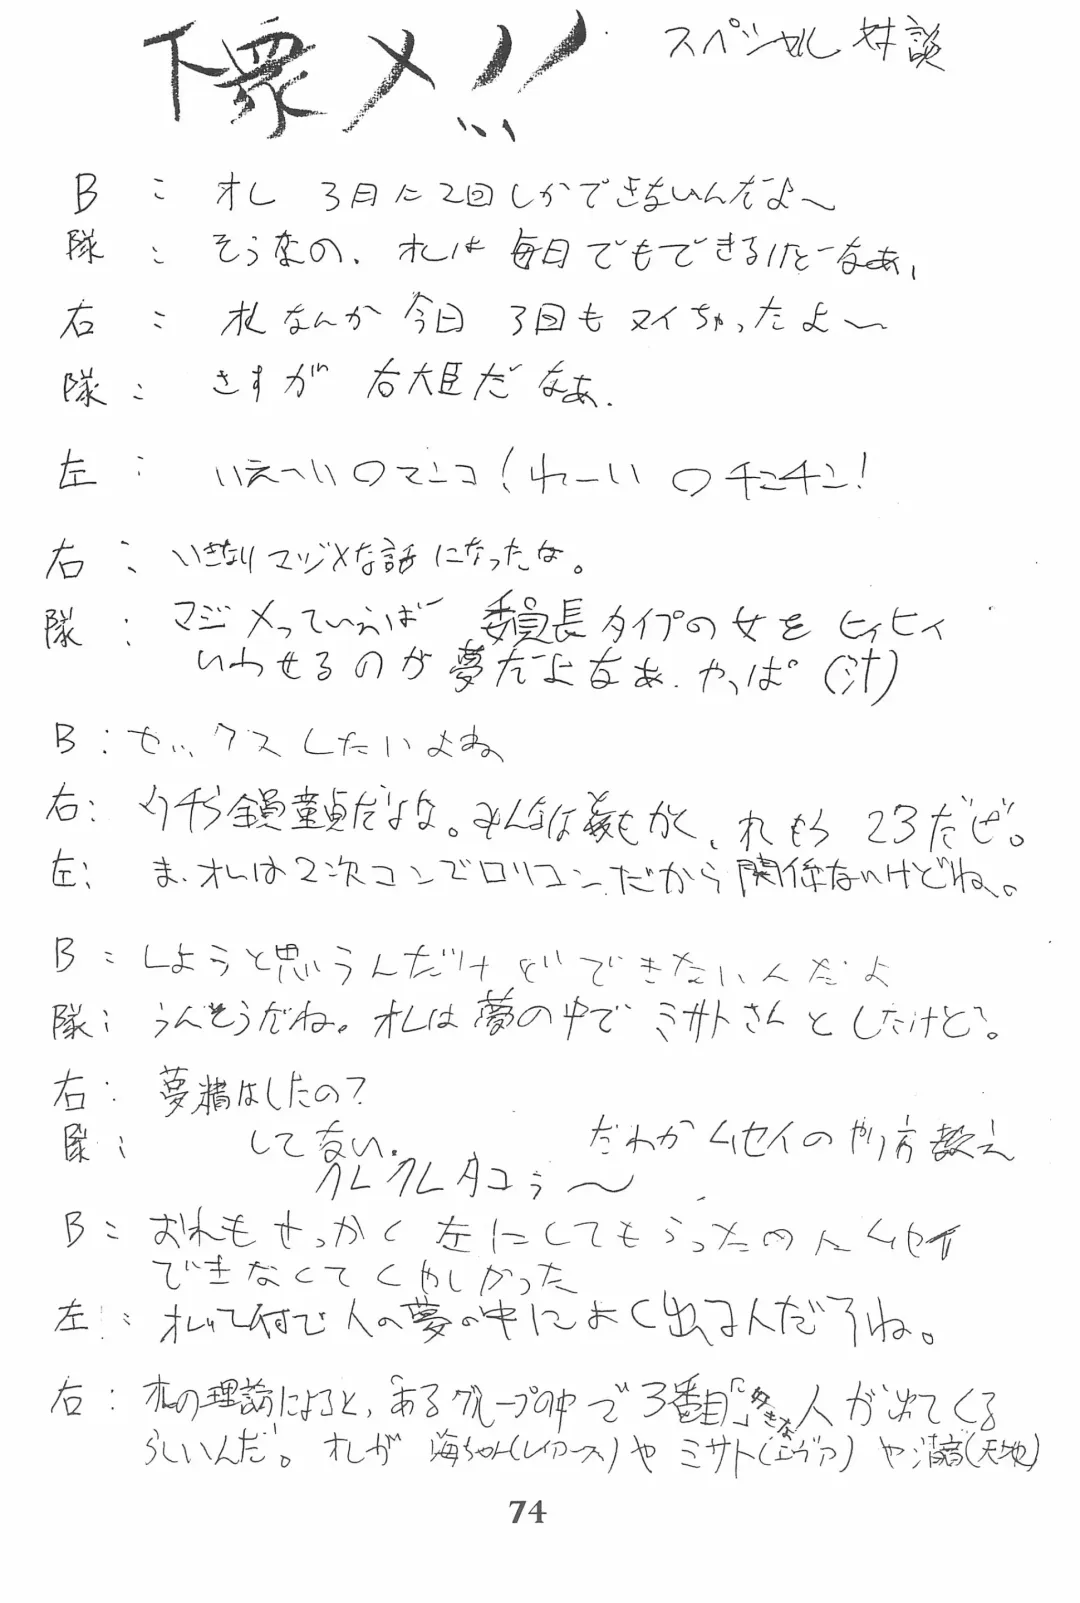 下衆メ!! スペシャル対談
B: オレ 3月に2回しかできないんだよ〜
隊: そうなの、オレは毎日でもできるけどーなぁ、
右: オレなんか今日 3回もヌイちゃったよ〜
隊: さすが 右大臣だなぁ.
左: いえーい〇マンコ!わーい〇チンチン!
右: いきなりマジメな話になったな。
隊: マジメっていえば 委員長タイプの女をヒィヒィ
いわせるのが夢だよなぁ.やっぱ(汁)
B: セックスしたいよね
右: ウチら全員童貞だよな。みんなはともかく、オレもう 23だぜ。
左: ま、オレは2次コンでロリコンだから関係ないけどね。
B: しようと思うんだけどできないんだよ
隊: うんそうだね。オレは夢の中でミサトさんとしたけど。
右: 夢精はしたの?
隊: してない. だれかムセイのやり方教え
クレクレタコラ〜
B: おれもせっかく左にしてもらったのにムセイ
できなくてくやしかった
左: オレって何で人の夢の中によく出るんだろね。
右: オレの理論によると,あるグループの中で3番目に好きな人が出てくる
らしいんだ。オレが 海ちゃん(レイアース)や ミサト(エヴァ)や清音(天地)
74